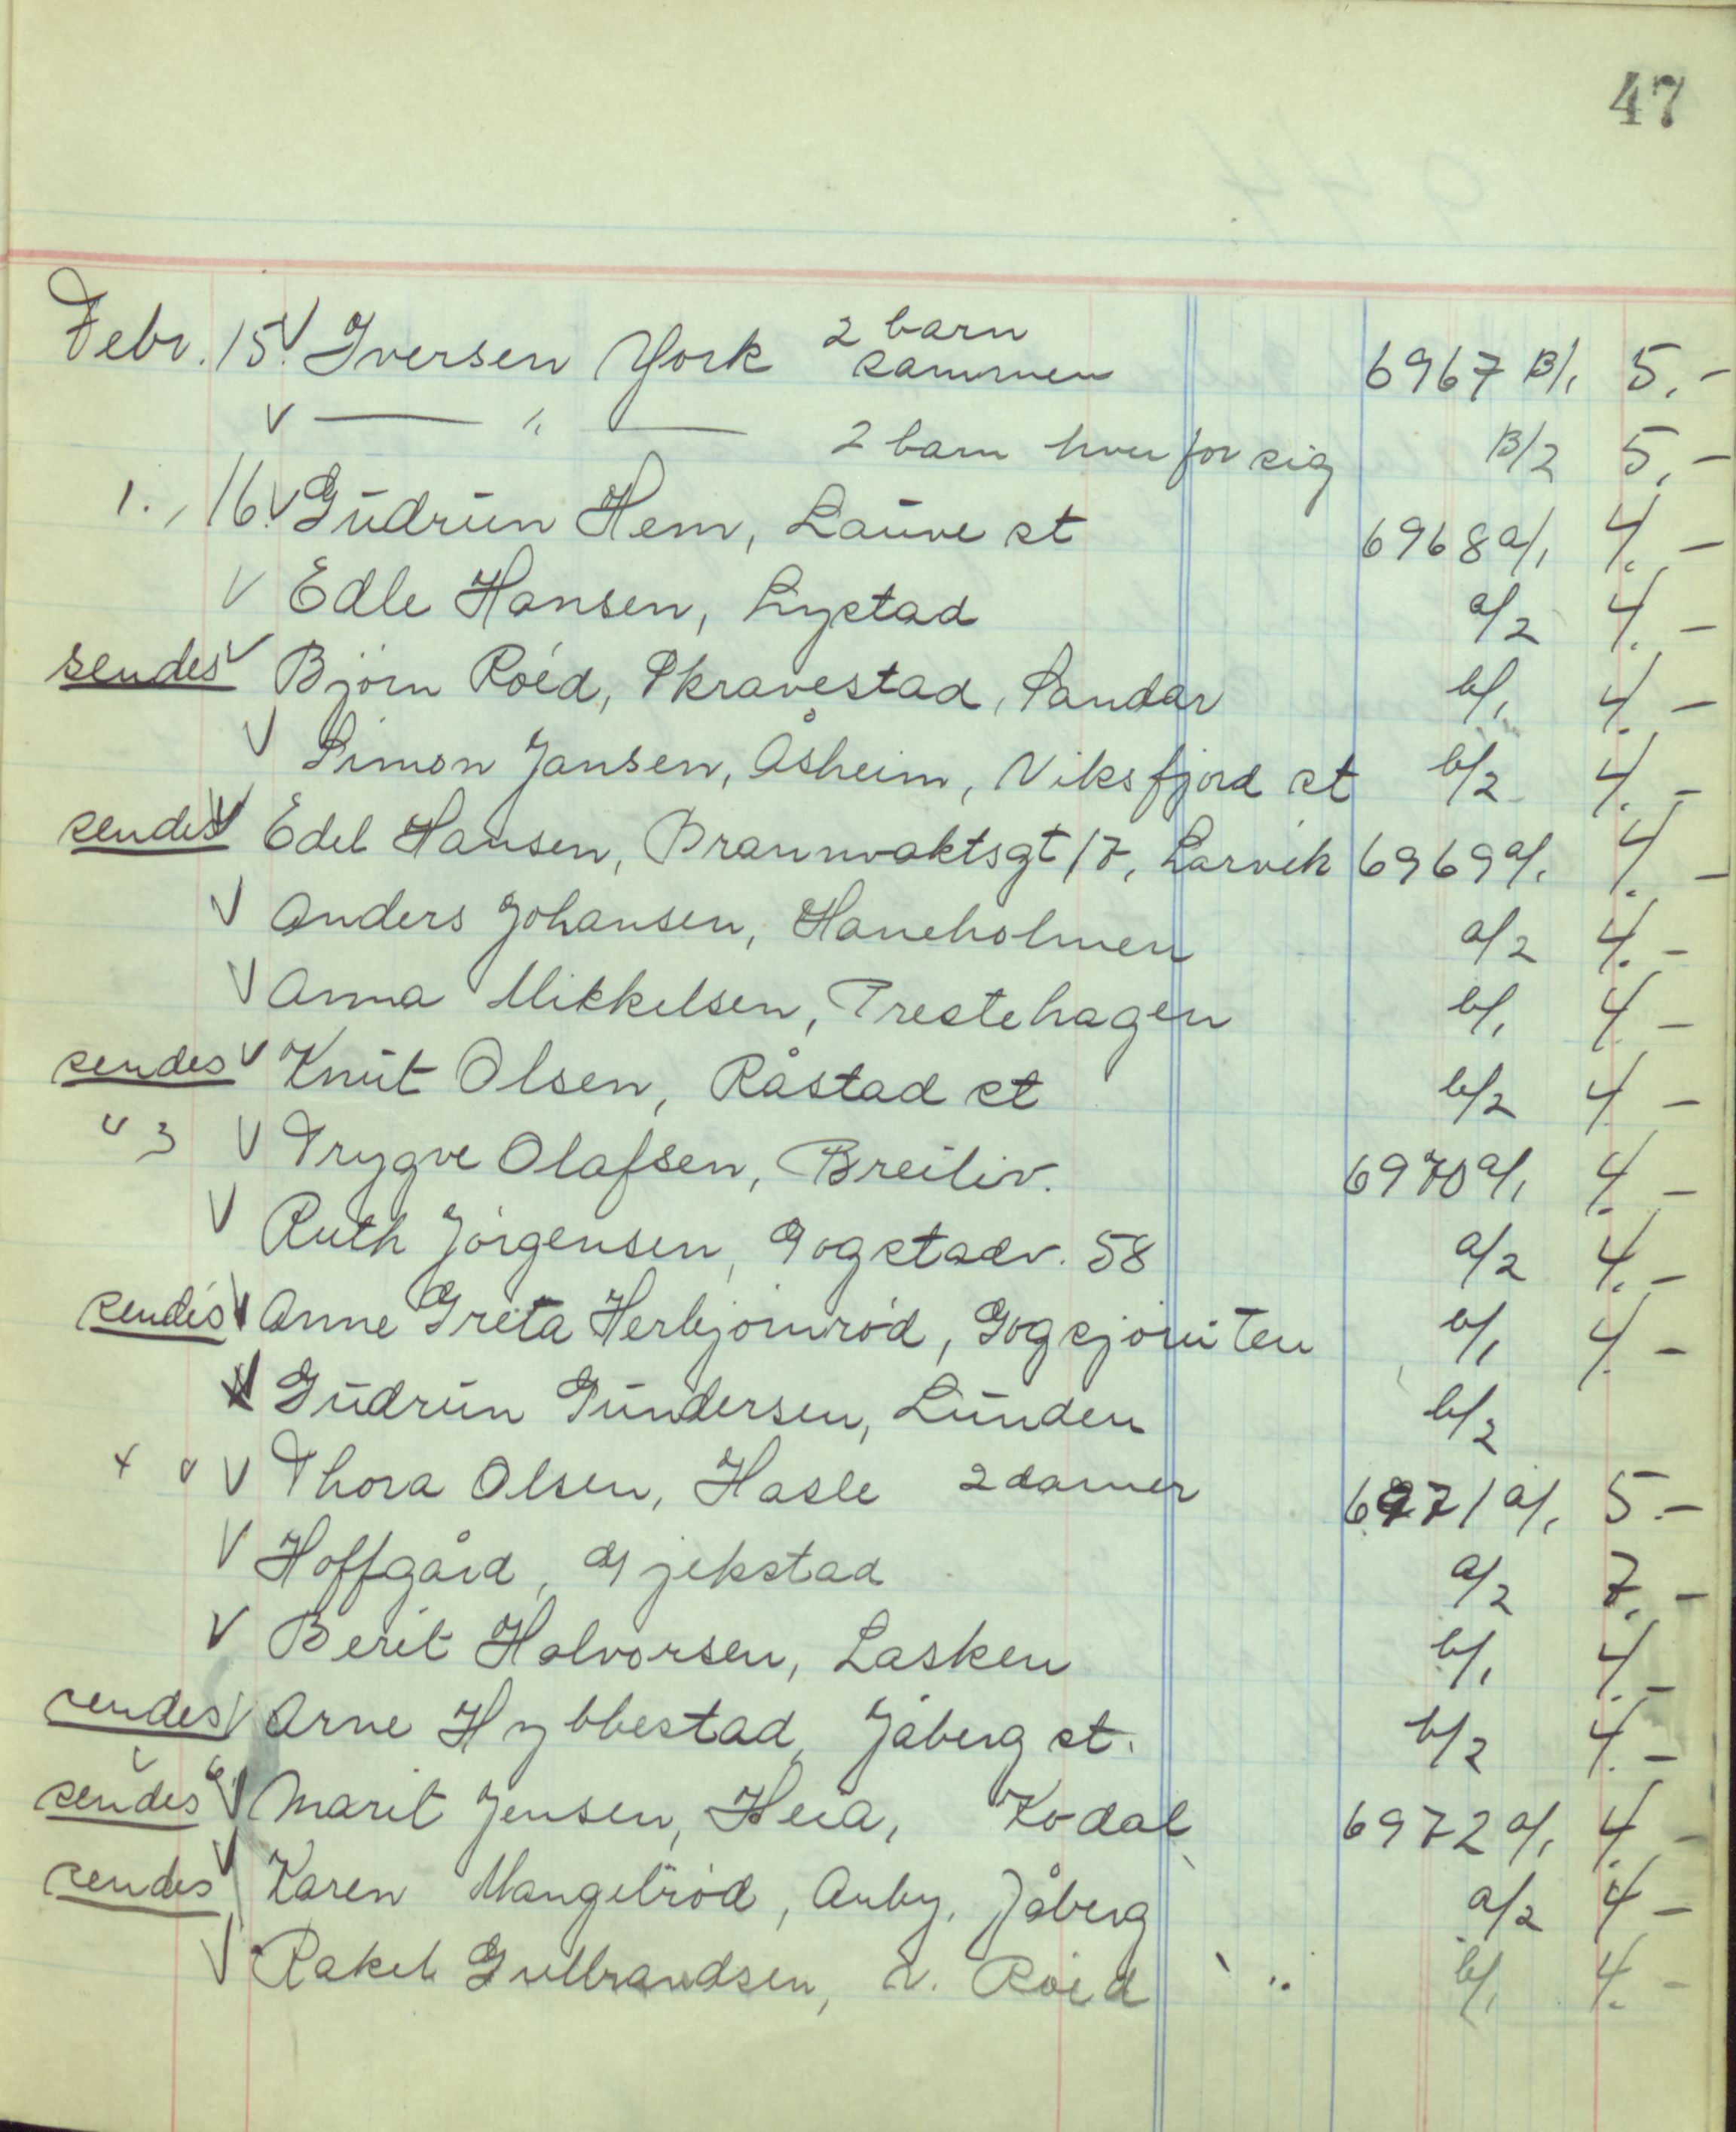 47
Febr. 15. V Iversen York 2 barn sammen 6967 B/1 5.-
V — " — 2 barn hver for sig B/2 5.-
1., 16. V Gudrun Hem, Lauve st 6968 a/1 4.-
V Edle Hansen, Lystad a/2 4.-
sendes V Björn Röed, Skravestad, Sandar b/1 4.-
V Simon Jansen, Åsheim, Viksfjord st b/2 4.-
sendes V Edel Hansen, Brannvaktsgt 17, Larvik 6969 a/1 4.-
V Anders Johansen, Haneholmen a/2 4.-
V Anna Mikkelsen, Prestehagen b/1 4.-
sendes V Knut Olsen, Råstad st b/2 4.-
V Trygve Olafsen, Breiliv. 6970 a/1 4.-
V Ruth Jörgensen, Gogstadv. 58 a/2 4.-
sendes V Anne Greta Herbjörnröd, b/1 4.-
V Gudrun Gundersen, Lunden b/2
V Thora Olsen, Hasle 2 damer 6971 a/1 5.-
V Hoffgård, Gjekstad a/2 7.-
V Berit Halvorsen, Lasken b/1 4.-
sendes V Arne Hybbestad, Jåberg st. b/2 4.-
sendes V Marit Jensen, Heia, Kodal 6972 a/1 4.-
sendes V Karen Mangelröd, Auby, Jåberg a/2 4.-
V Rakel Gulbrandsen, v. Röed " b/1 4.-